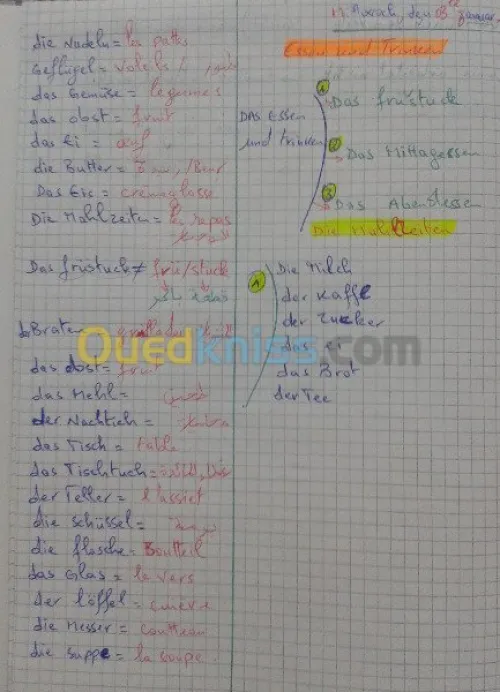 die Nudeln = les pattes
Geflügel = volails
das Gemüse = legumes
das obst = fruit
das Ei = œuf
die Butter =
Das Eis = creme glasse
Die Mahlzeiten = les repas
Das früstuck ≠ früh/stuck
Braten
das obst = fruit
das Mehl =
der Nachtich =
das Tisch = table
das Tischtuch =
der Teller = l'assiet
die schüssel =
die flasche = boutteil
das Glas = le vers
der löffel =
die Messer = coutteau
die suppe = la soupe.
Essen und Trinken
DAS Essen
und trinken
1 Das früstuck
2 Das Mittagessen
3 Das Abendessen
Die Mahlzeiten
1 Die Milch
der Kaffe
der Zucker
das ei
das Brot
der Tee
Ouedkniss.com